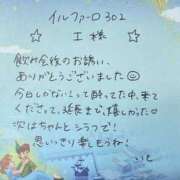 イルファーロ302
☆ I 様 ☆
飲み会後のお誘い、
ありがとうございました☺
今日しかないしって酔ってた中、来て
くださって、延長まで、嬉しかった♡
次はちゃんとシラフで!
思いっきり楽しもうね!